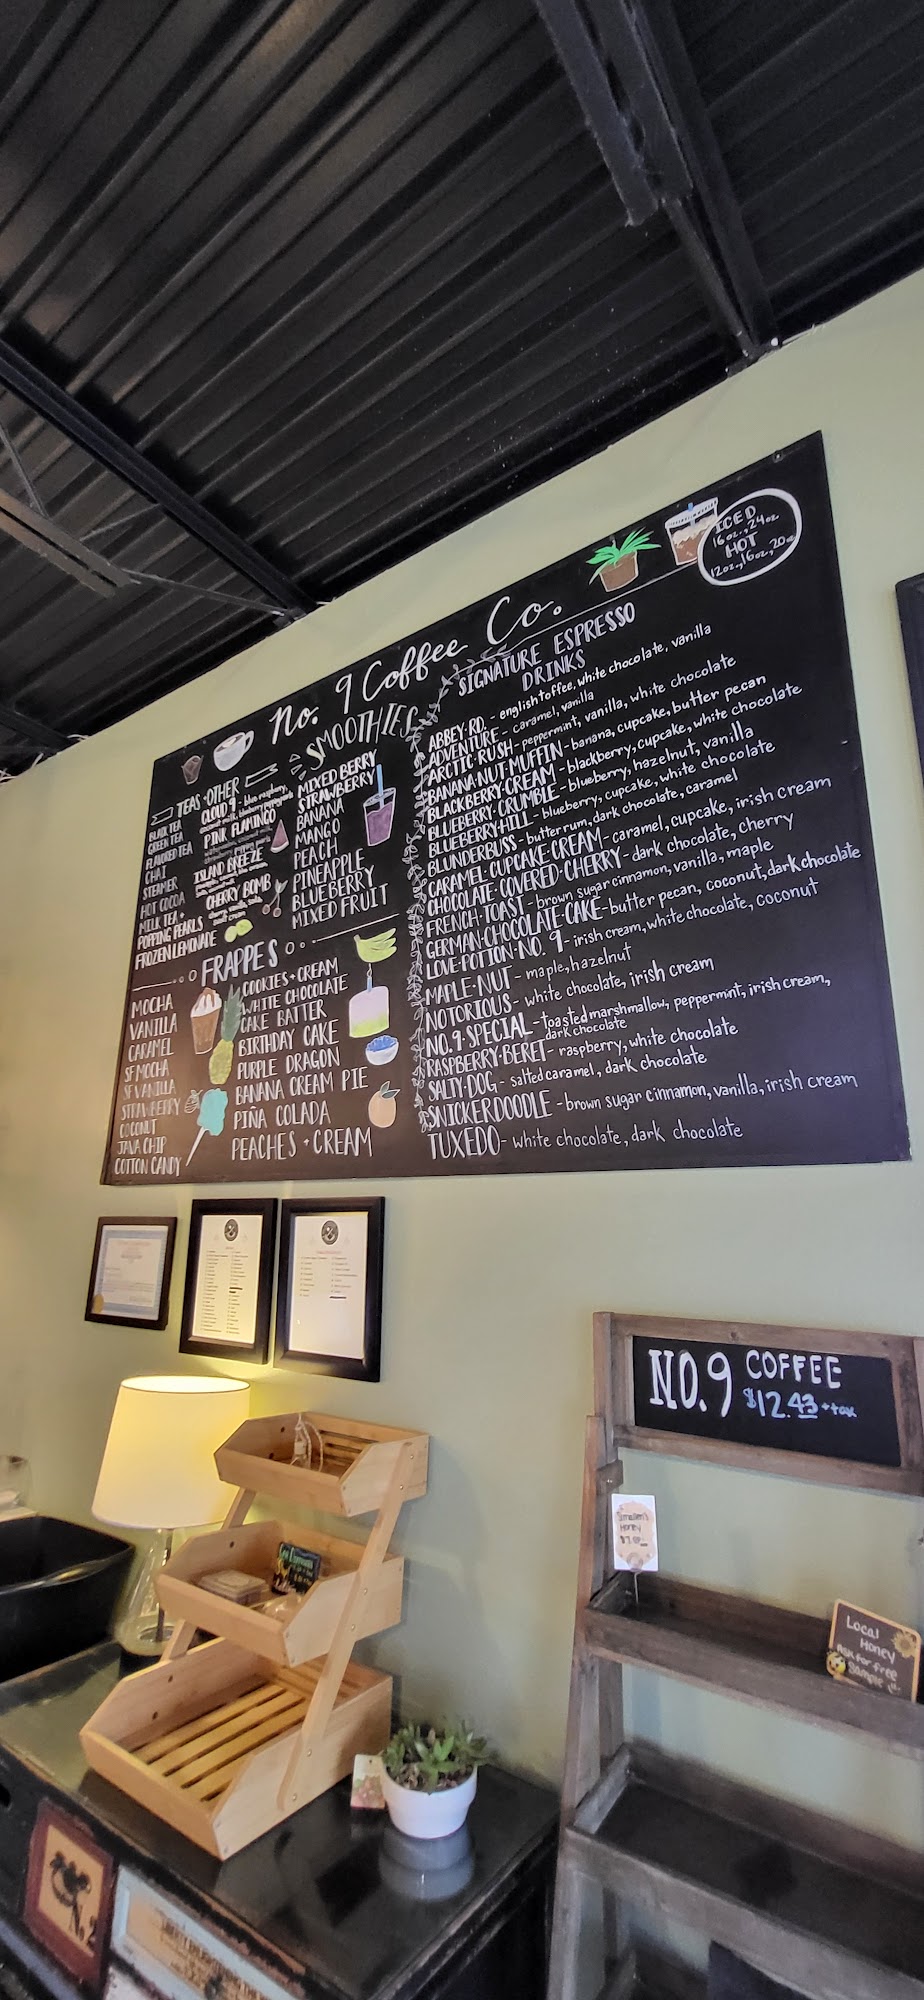 No. 9 Coffee Co.
ICED
16oz., 24oz
HOT
12oz., 16oz, 20oz
TEAS + OTHER
BLACK TEA
GREEN TEA
FLAVORED TEA
CHAI
STEAMER
HOT COCOA
MILK TEA +
POPPING PEARLS
FROZEN LEMONADE
CLOUD 9 - blue raspberry,
PINK FLAMINGO
ISLAND BREEZE
CHERRY BOMB
SMOOTHIES
MIXED BERRY
STRAWBERRY
BANANA
MANGO
PEACH
PINEAPPLE
BLUEBERRY
MIXED FRUIT
FRAPPES
MOCHA
VANILLA
CARAMEL
SF MOCHA
SF VANILLA
STRAWBERRY
COCONUT
JAVA CHIP
COTTON CANDY
COOKIES + CREAM
WHITE CHOCOLATE
CAKE BATTER
BIRTHDAY CAKE
PURPLE DRAGON
BANANA CREAM PIE
PIÑA COLADA
PEACHES + CREAM
SIGNATURE ESPRESSO
DRINKS
ABBEY RD. - english toffee, white chocolate, vanilla
ADVENTURE - caramel, vanilla
ARCTIC RUSH - peppermint, vanilla, white chocolate
BANANA NUT MUFFIN - banana, cupcake, butter pecan
BLACKBERRY CREAM - blackberry, cupcake, white chocolate
BLUEBERRY CRUMBLE - blueberry, hazelnut, vanilla
BLUEBERRY HILL - blueberry, cupcake, white chocolate
BLUNDERBUSS - butter rum, dark chocolate, caramel
CARAMEL CUPCAKE CREAM - caramel, cupcake, irish cream
CHOCOLATE COVERED CHERRY - dark chocolate, cherry
FRENCH TOAST - brown sugar cinnamon, vanilla, maple
GERMAN CHOCOLATE CAKE - butter pecan, coconut, dark chocolate
LOVE POTION NO. 9 - irish cream, white chocolate, coconut
MAPLE NUT - maple, hazelnut
NOTORIOUS - white chocolate, irish cream
NO. 9 SPECIAL - toasted marshmallow, peppermint, irish cream,
dark chocolate
RASPBERRY BERET - raspberry, white chocolate
SALTY DOG - salted caramel, dark chocolate
SNICKERDOODLE - brown sugar cinnamon, vanilla, irish cream
TUXEDO - white chocolate, dark chocolate
NO. 9 COFFEE
$12.43 + tax
Honey
Local
Honey
Ask for free
Sample
No. 2